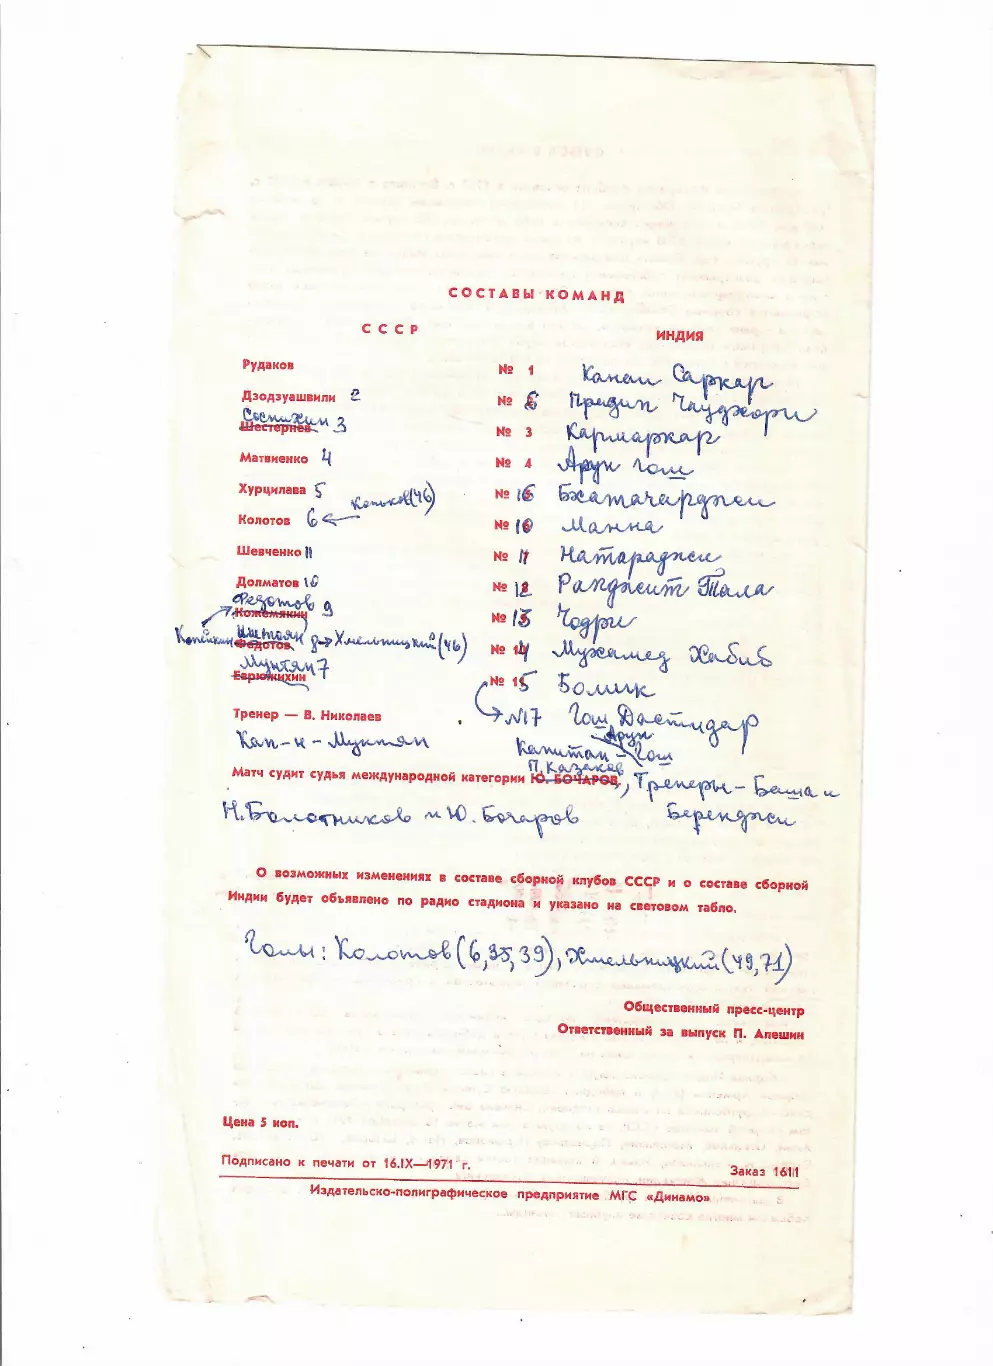 СОСТАВЫ КОМАНД
СССР ИНДИЯ
Рудаков № 1 Канаи Саркар
Дзодзуашвили 2 № 6 Прадип Чауджори
Соснихин 3
Шестернев № 3 Кармаркар
Матвиенко 4 № 4 Арун Гош
Хурцилава 5 № 16 Бхатачарджи
Коньков (46)
Колотов 6 № 10 Манна
Шевченко 11 № 11 Натараджи
Долматов 10 № 12 Ранджит Тапа
Федотов 9
Кожемякин № 13 Чодри
Копейкин Иштоян 8 → Хмельницкий (46)
Федотов № 14 Мухамед Хабиб
Мунтян 7
Еврюжихин № 15 Бомик
Тренер — В. Николаев №17 Гош Дастидар
Кап-н - Мунтян Капитан - Арун Гош
П. Казаков
Матч судит судья международной категории Ю. БОЧАРОВ, Тренеры - Баша и
Н. Болотников и Ю. Бочаров Беренджи
О возможных изменениях в составе сборной клубов СССР и о составе сборной
Индии будет объявлено по радио стадиона и указано на световом табло.
Голы: Колотов (6, 35, 39), Хмельницкий (49, 71)
Общественный пресс-центр
Ответственный за выпуск П. Алешин
Цена 5 коп.
Подписано к печати от 16.IX—1971 г. Заказ 1611
Издательско-полиграфическое предприятие МГС «Динамо»